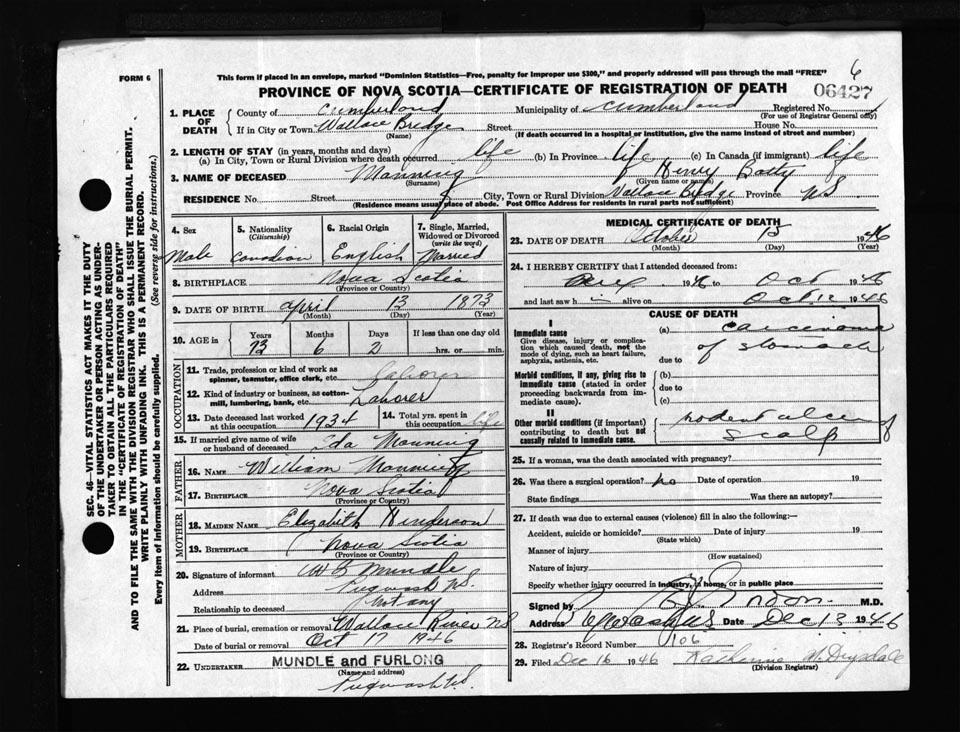 FORM 6
This form if placed in an envelope, marked "Dominion Statistics—Free, penalty for improper use $300," and properly addressed will pass through the mail "FREE"
6
PROVINCE OF NOVA SCOTIA—CERTIFICATE OF REGISTRATION OF DEATH
06427
1. PLACE OF DEATH
County of Cumberland Municipality of Cumberland Registered No.
(For use of Registrar General only)
If in City or Town Wallace Bridge Street House No.
(Name) (If death occurred in a hospital or institution, give the name instead of street and number)
2. LENGTH OF STAY (in years, months and days)
(a) In City, Town or Rural Division where death occurred life (b) In Province life (c) In Canada (if immigrant) life
3. NAME OF DECEASED Manning Henry Batty
(Surname) (Given name or names)
RESIDENCE No. Street City, Town or Rural Division Wallace Bridge Province N.S
(Residence means usual place of abode. Post Office Address for residents in rural parts not sufficient)
4. Sex
Male
5. Nationality
(Citizenship)
Canadian
6. Racial Origin
English
7. Single, Married, Widowed or Divorced
(write the word)
Married
8. BIRTHPLACE Nova Scotia
(Province or Country)
9. DATE OF BIRTH April 13 1873
(Month) (Day) (Year)
10. AGE in
Years Months Days If less than one day old
73 6 2 hrs. or min.
OCCUPATION
11. Trade, profession or kind of work as spinner, teamster, office clerk, etc. Laborer
12. Kind of industry or business, as cotton-mill, lumbering, bank, etc. Laborer
13. Date deceased last worked at this occupation 1934
14. Total yrs. spent in this occupation life
15. If married give name of wife or husband of deceased Ida Manning
FATHER
16. NAME William Manning
17. BIRTHPLACE Nova Scotia
(Province or Country)
MOTHER
18. MAIDEN NAME Elizabeth Henderson
19. BIRTHPLACE Nova Scotia
(Province or Country)
20. Signature of informant Mundle
Address Pugwash N.S.
Relationship to deceased Not any
21. Place of burial, cremation or removal Wallace River N.S
Date of burial or removal Oct 17 1946
22. UNDERTAKER MUNDLE and FURLONG
(Name and address)
Pugwash N.S.
MEDICAL CERTIFICATE OF DEATH
23. DATE OF DEATH October 15 1946
(Month) (Day) (Year)
24. I HEREBY CERTIFY that I attended deceased from:
1946 to Oct 1946
and last saw h i alive on Oct 12 1946
CAUSE OF DEATH
I
Immediate cause
Give disease, injury or complication which caused death, not the mode of dying, such as heart failure, asphyxia, asthenia, etc.
(a) carcinoma
of stomach
due to
Morbid conditions, if any, giving rise to immediate cause (stated in order proceeding backwards from immediate cause).
(b)
due to
(c)
II
Other morbid conditions (if important) contributing to death but not causally related to immediate cause.
rodent ulcer of
scalp
25. If a woman, was the death associated with pregnancy?
26. Was there a surgical operation? no Date of operation 19
State findings Was there an autopsy?
27. If death was due to external causes (violence) fill in also the following:—
Accident, suicide or homicide? Date of injury 19
(State which)
Manner of injury
(How sustained)
Nature of injury
Specify whether injury occurred in industry, in home, or in public place
Signed by M.D.
Address Date Dec 13 1946
28. Registrar's Record Number 106
29. Filed Dec 16 1946 Katherine M. Drysdale
(Division Registrar)
SEC. 46—VITAL STATISTICS ACT MAKES IT THE DUTY
OF THE UNDERTAKER OR PERSON ACTING AS UNDER-
TAKER TO OBTAIN ALL THE PARTICULARS REQUIRED
IN THE "CERTIFICATE OF REGISTRATION OF DEATH"
AND TO FILE THE SAME WITH THE DIVISION REGISTRAR WHO SHALL ISSUE THE BURIAL PERMIT.
WRITE PLAINLY WITH UNFADING INK. THIS IS A PERMANENT RECORD.
Every item of Information should be carefully supplied. (See reverse side for instructions.)